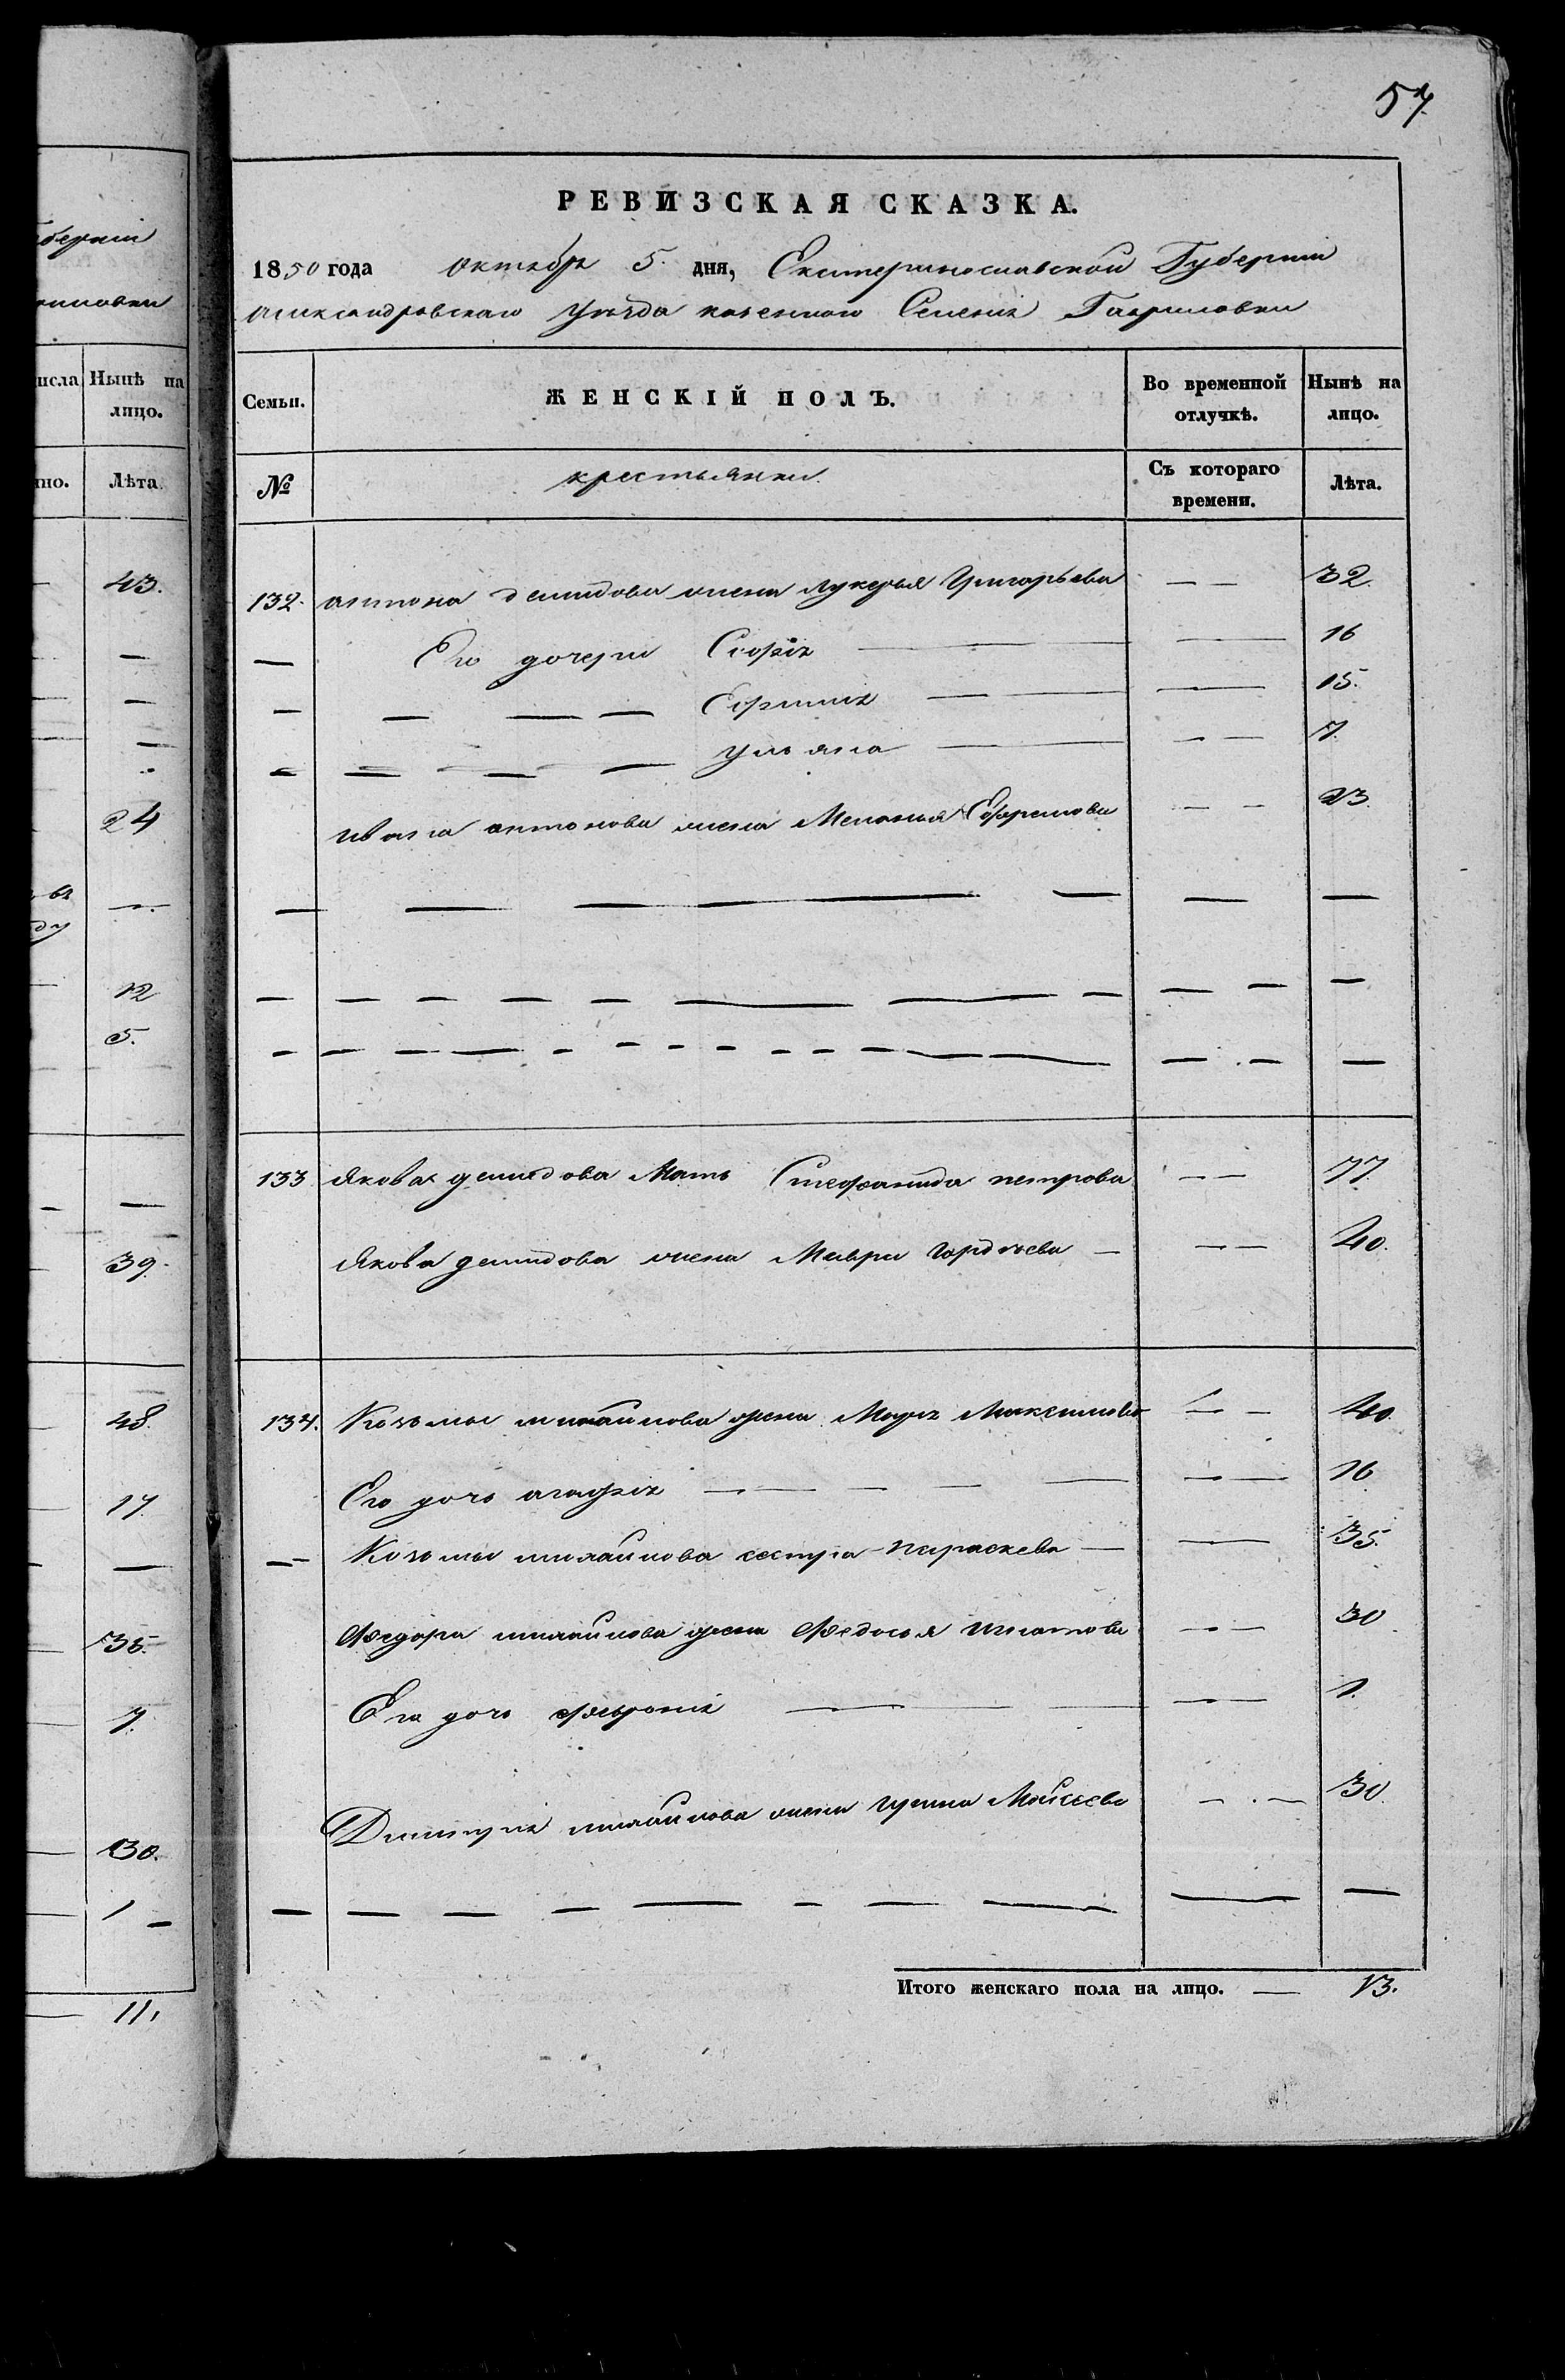 57.
РЕВИЗСКАЯ СКАЗКА.
1850 года октября 5. дня, Екатеринославской Губернии
александровскаго уѣзда казеннаго Селенія Гавриловки
Семьи. ЖЕНСКІЙ ПОЛЪ. Во временной отлучкѣ. Нынѣ на лицо.
№ крестьянки. Съ котораго времени. Лѣта.
132. антона демидова жена лукерья Григорьева — — 32.
— Его дочери Софія — — 16
— — — — — 15.
— — — — ульяна — — — 7.
ивана антонова жена Меланья Ефремова — — 23.
133 Якова демидова Мать Стефанида петрова — — 77.
Якова демидова жена Мавра гордѣева — — — 40.
134. Козьмы михайлова жена Марья Максимова — — 40.
Его дочь агафія — — — — — — 16
— Козьмы михайлова сестра параскева — — 35.
Федора михайлова жена Федосья игнатова — — 30
Его дочь февронія — — — — 1.
Дмитрія михайлова жена ирина Мойсеева — — 30.
Итого женскаго пола на лицо. — 13.
губерніи
сла Нынѣ на лицо.
но. Лѣта.
43.
24
12
5.
39.
48.
17.
35.
7.
30.
1
11.